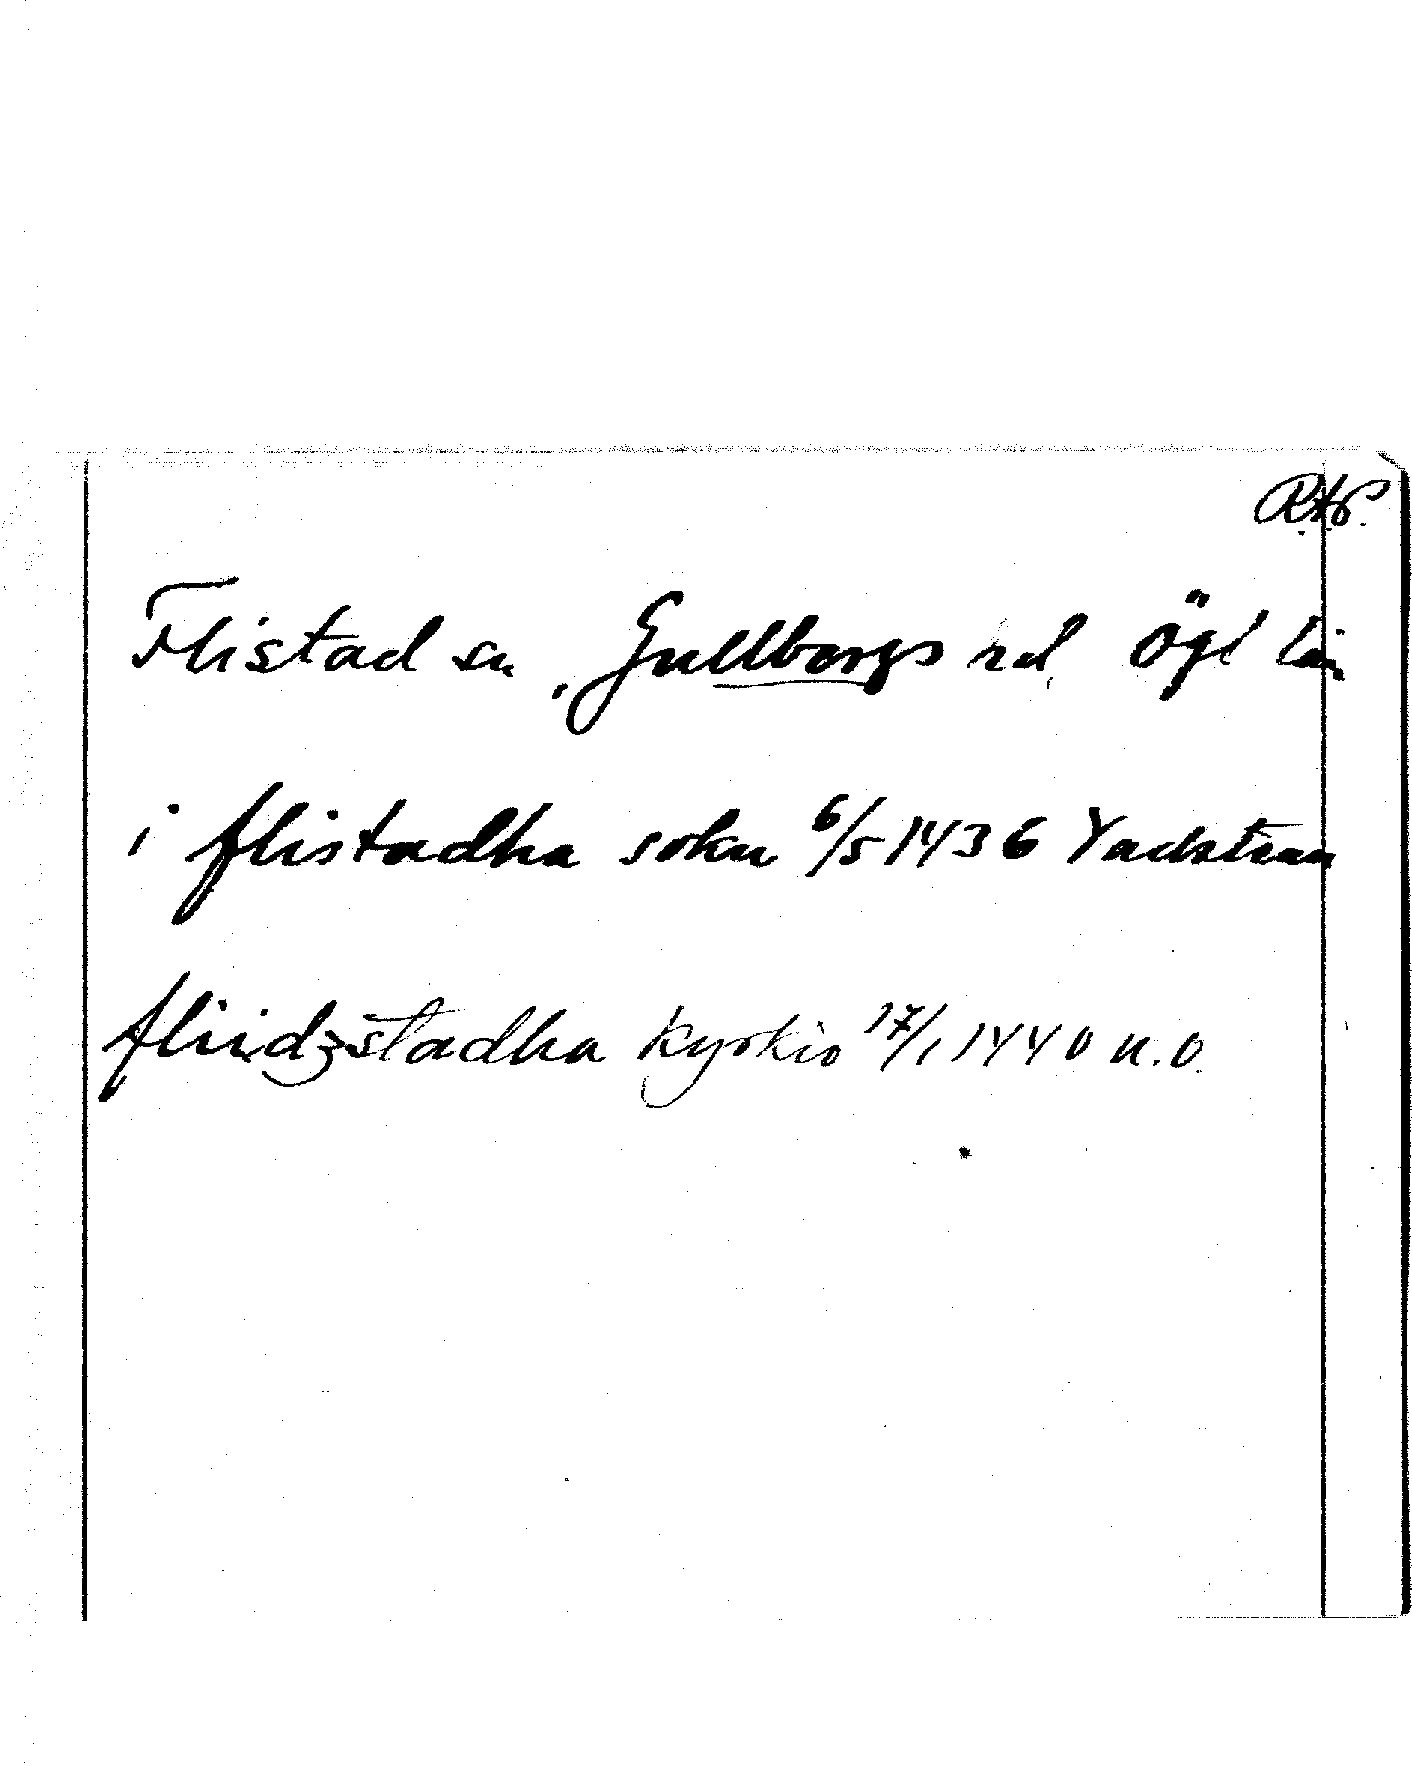 R.A.P.
Flistad sn, Gullbergs hd, Ögl län
i flistadha sokn 6/5 1436 Vadstena
fliidzstadha kyrkio 17/1 1440 u.o.